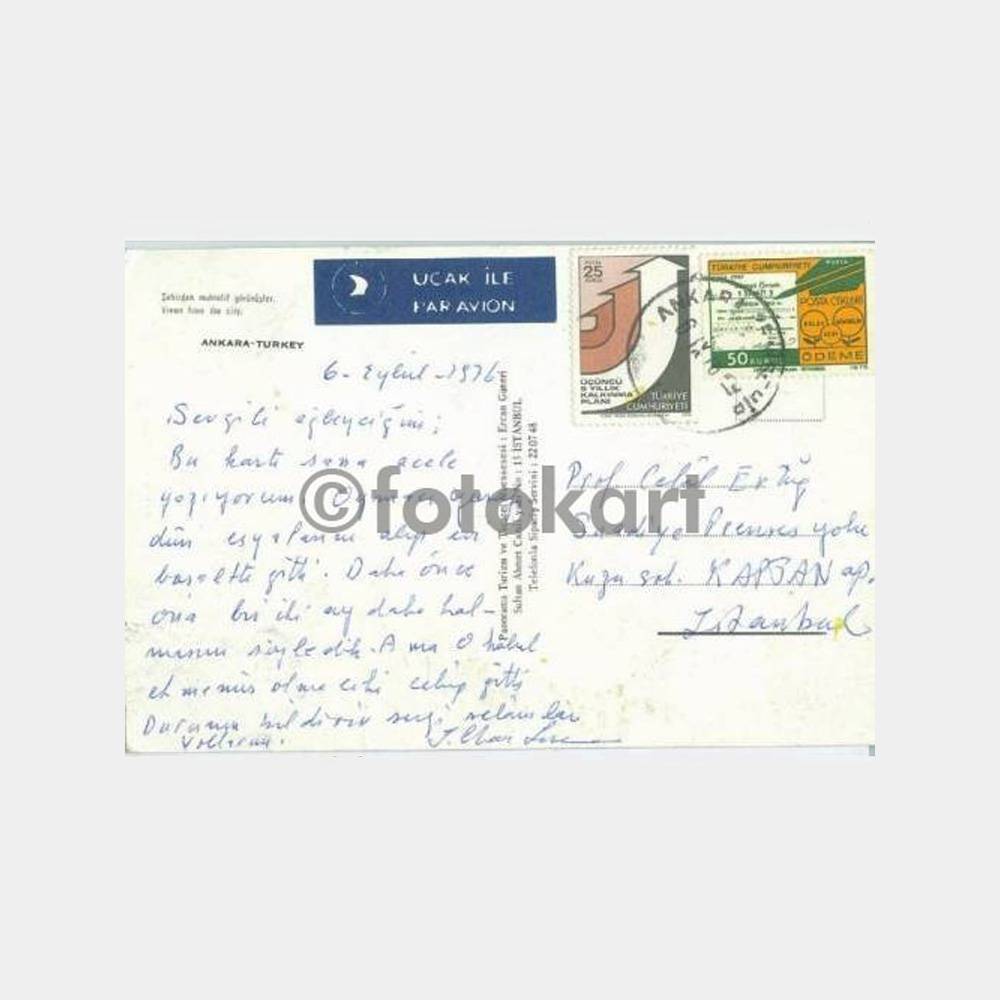 UÇAK İLE
PAR AVION
Şehirden muhtelif görünüşler.
Views from the city.
ANKARA-TURKEY
6 - Eylül - 1976
Sevgili
Bu kartı sana acele
yazıyorum
dün eşyalarını alıp
gitti. Daha önce
ona bir iki ay daha kal-
masını söyledik. Ama O kabul
etmemiş olacak ki çekip gitti
Durumu bildirir sevgi selamlar
yollarım.
©fotokart
Panorama Turizm ve Ercan Guneri
Sultan Ahmet No : 15 İSTANBUL
Telefonla Sipariş Servisi : 22 07 48
POSTA
25
KURUŞ
ÜÇÜNCÜ
5 YILLIK
KALKINMA
PLANI
TÜRKİYE
CUMHURİYETİ
TÜRKİYE CUMHURİYETİ
POSTA
POSTA ÇEKLERİ
50 KURUŞ
ÖDEME
ANKARA
Prof. Celâl Ertuğ
Suadiye Prenses yolu
Kuzu sok. KAPTAN ap.
Istanbul